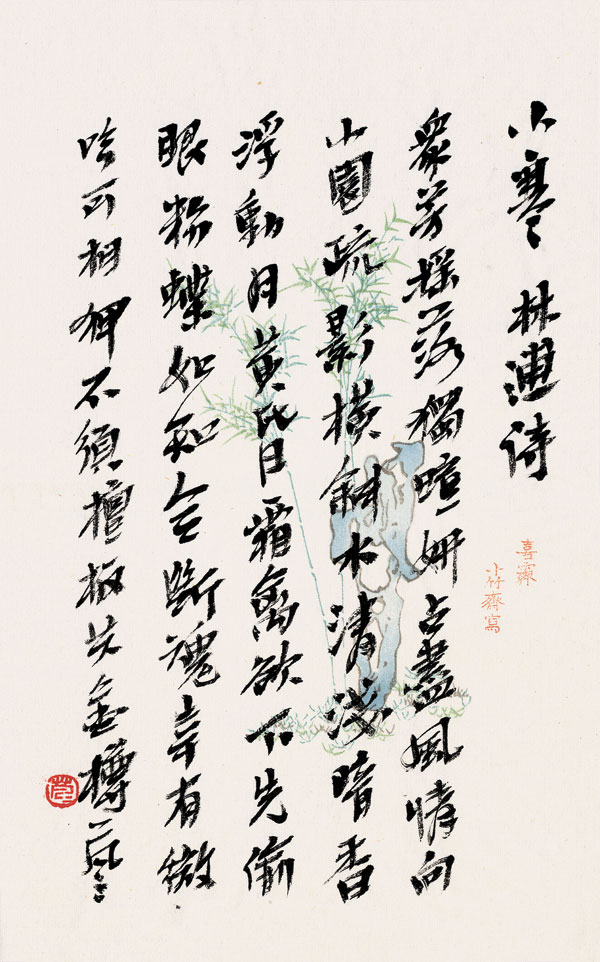 小寒 林逋詩
衆芳摇落獨暄妍占盡風情向
小園疏影横斜水清淺暗香
浮動月黄昏霜禽欲下先偷
眼粉蝶如知合斷魂幸有微
吟可相狎不須檀板共金樽
小竹齋寫